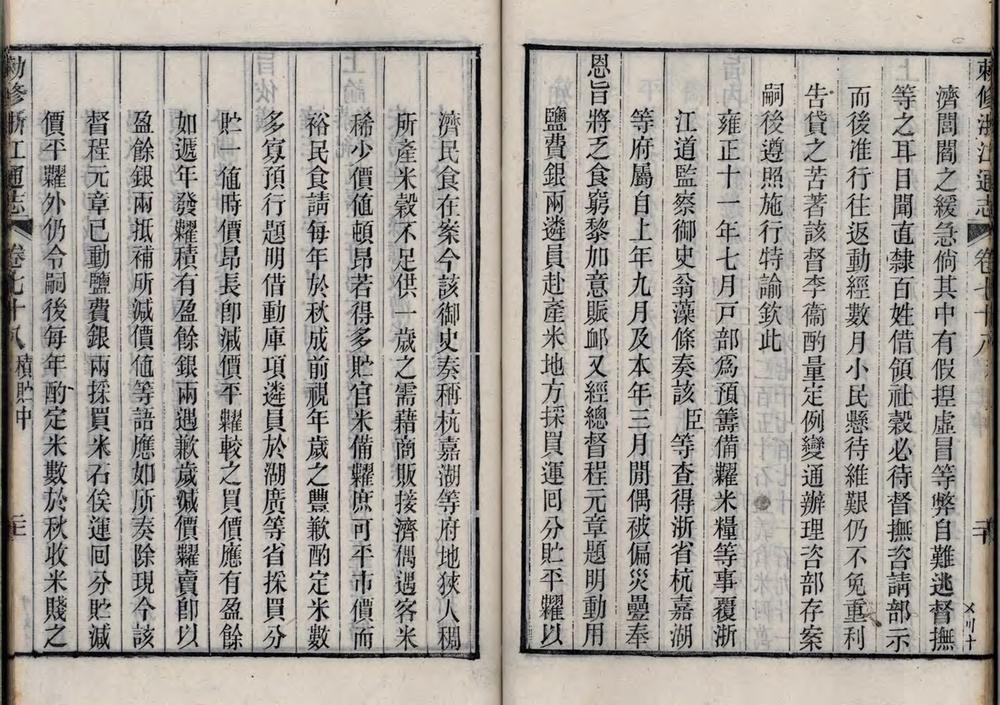 敕修浙江通志 卷七十八 二十
濟閭閻之緩急倘其中有假捏虛冒等弊自難逃督撫
等之耳目聞直隸百姓借領社穀必待督撫咨請部示
而後准行往返動經數月小民懸待維艱仍不免重利
告貸之苦著該督李衞酌量定例變通辦理咨部存案
嗣後遵照施行特諭欽此
雍正十一年七月戸部爲預籌備糶米糧等事覆浙
江道監察御史翁藻條奏該臣等查得浙省杭嘉湖
等府屬自上年九月及本年三月閒偶被偏災疊奉
恩旨將乏食窮黎加意賑卹又經總督程元章題明動用
鹽費銀兩遴員赴產米地方採買運囘分貯平糶以
濟民食在案今該御史奏稱杭嘉湖等府地狹人稠
所產米穀不足供一歲之需藉商販接濟偶遇客米
稀少價値頓昂若得多貯官米備糶庶可平市價而
裕民食請每年於秋成前視年歲之豐歉酌定米數
多寡預行題明借動庫項遴員於湖廣等省採買分
貯一値時價昂長卽減價平糶較之買價應有盈餘
如遞年發糶積有盈餘銀兩遇歉歲減價糶賣卽以
盈餘銀兩抵補所減價値等語應如所奏除現今該
督程元章已動鹽費銀兩採買米石俟運囘分貯減
價平糶外仍令嗣後每年酌定米數於秋收米賤之
敕修浙江通志 卷七十八 積貯中